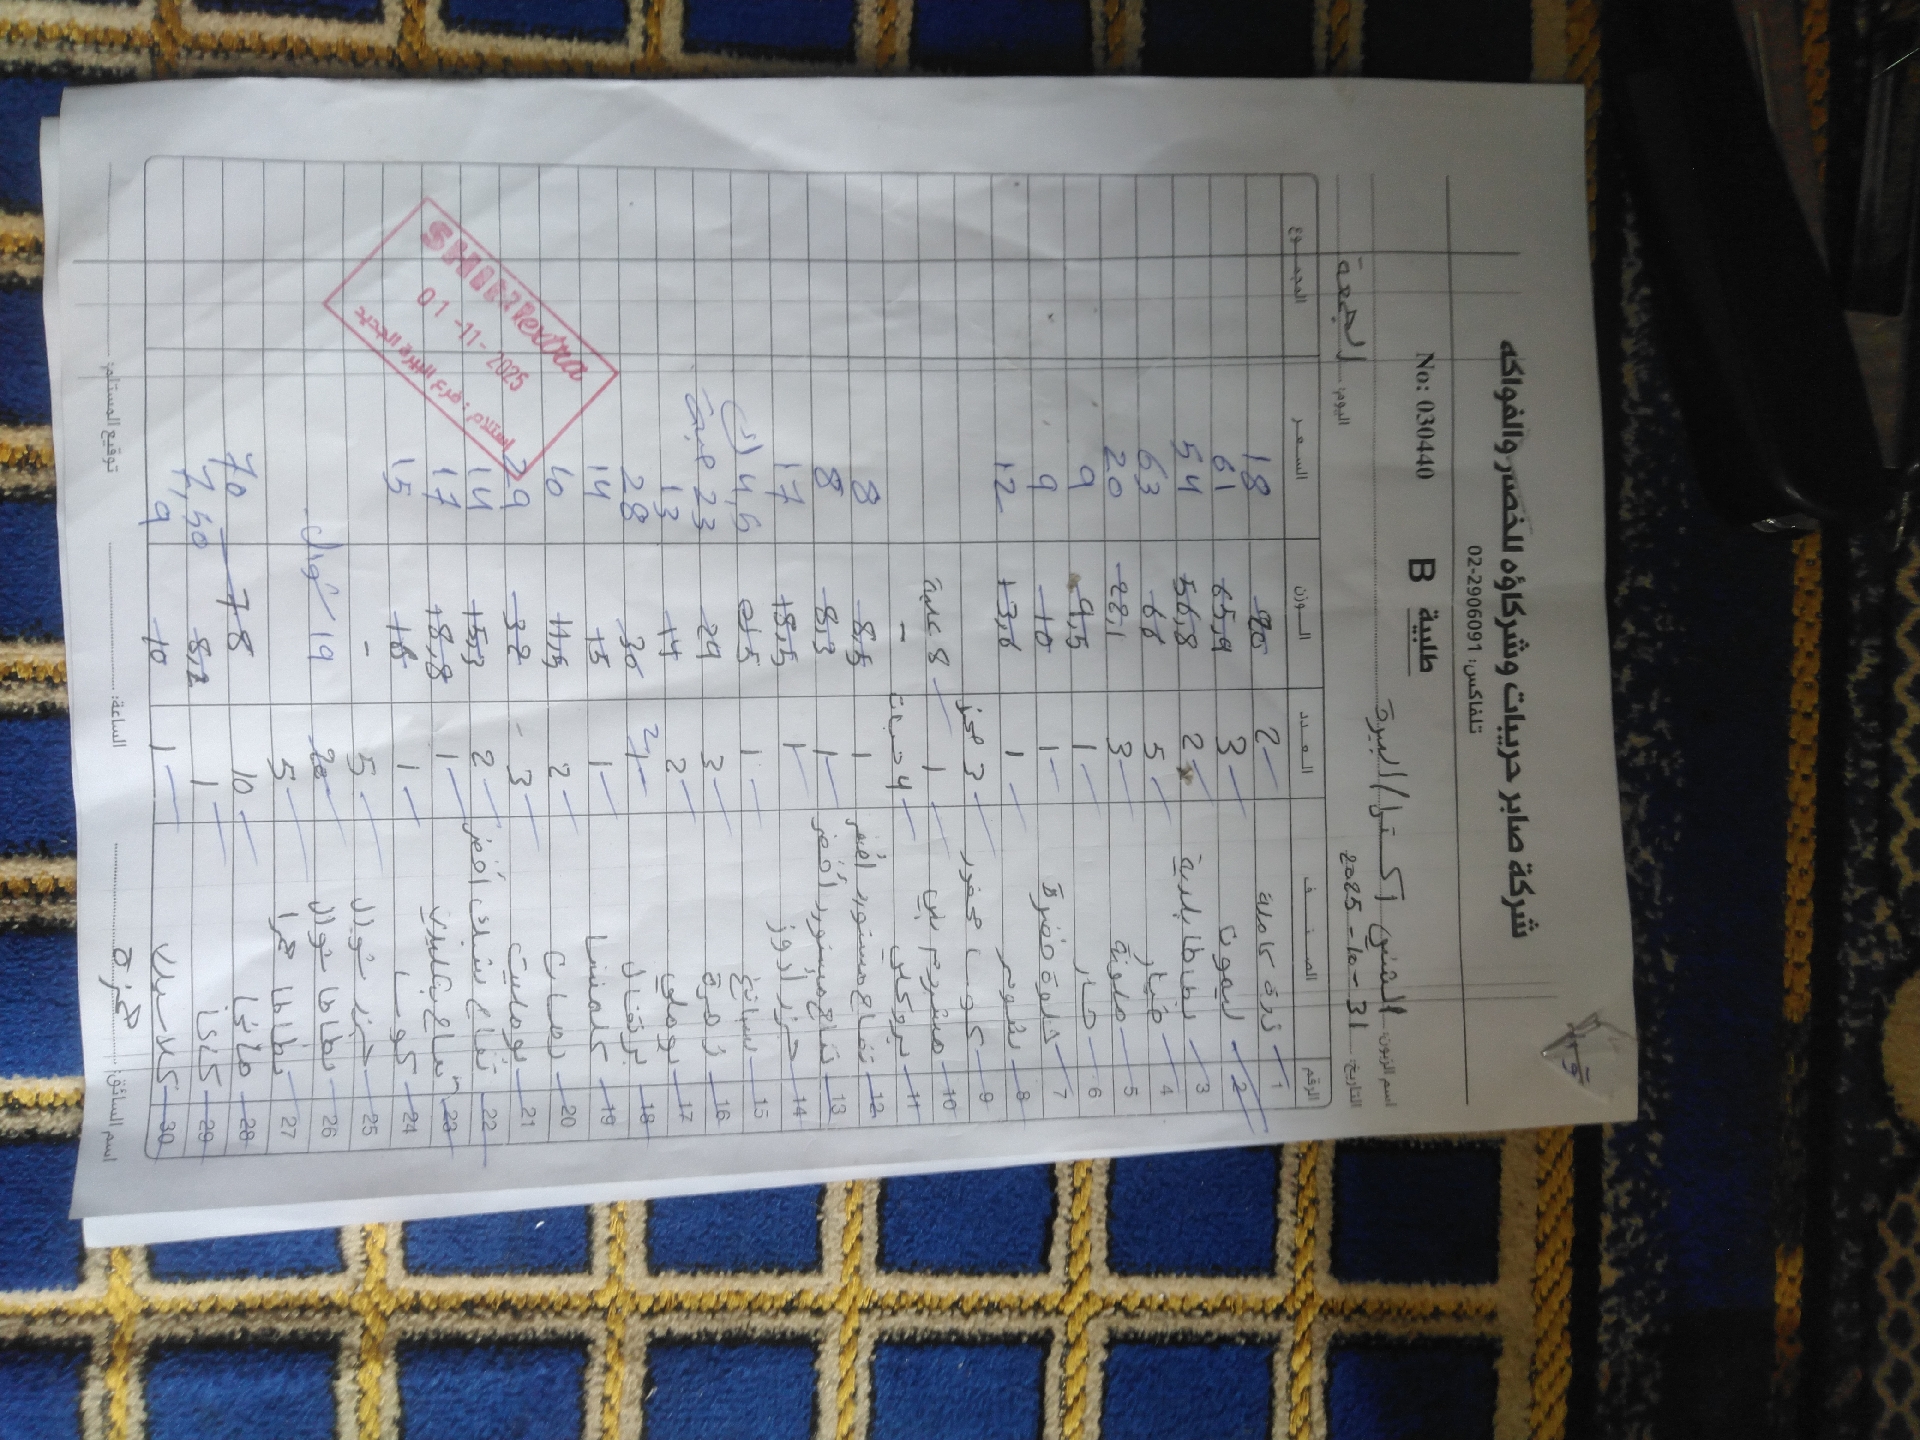 شركة صابر حريبات وشركاؤه للخضر والفواكه
تلفاكس: 02-2906091
No: 030440 طلبية B
اسم الزبون: الشني اكسترا / البيرة
التاريخ: 31-10-2025 اليوم: الجمعة
الرقم الصنف العدد الوزن السعر المجموع
1 ذرة كاملة 2 20 18
2 ليمون 3 65,9 61
3 بطاطا بلدية 2 56,8 54
4 خيار 5 66 63
5 ملونة 3 22,1 20
6 حار 1 9,5 9
7 حلوة خضرة 1 10 9
8 ثوم 1 13,6 12
9 كوسا محفور 3
10 مشروم بني 1 8 علبة
11 بروكلي 4 حبات -
12 تفاح مستورد اصفر 1 8,5 8
13 تفاح مستورد أخضر 1 8,3 8
14 جزر 1 18,5 17
15 سبانخ 1 5 4,5
16 زهرة 3 29 23
17 بوملي 2 14 13
18 برتقال 30 28
19 كلمنتينا 1 15 14
20 رمان 2 11,5 10
21 بوملیت 3 32 29
22 تفاح أخضر 2 15,3 14
23 تفاح 1 18,8 17
24 كوسا 1 16 15
25 جزر شوال 5 -
26 بطاطا شوال 20 19 شوال
27 بطاطا حمرا 5
28 مانجا 10 78 70
29 كاكا 1 8,2 7,50
30 1 10 9
اسم السائق: حمزة الساعة: توقيع المستلم:
SHINI extra
01-11-2025
استلام: فرع البيرة الجديد